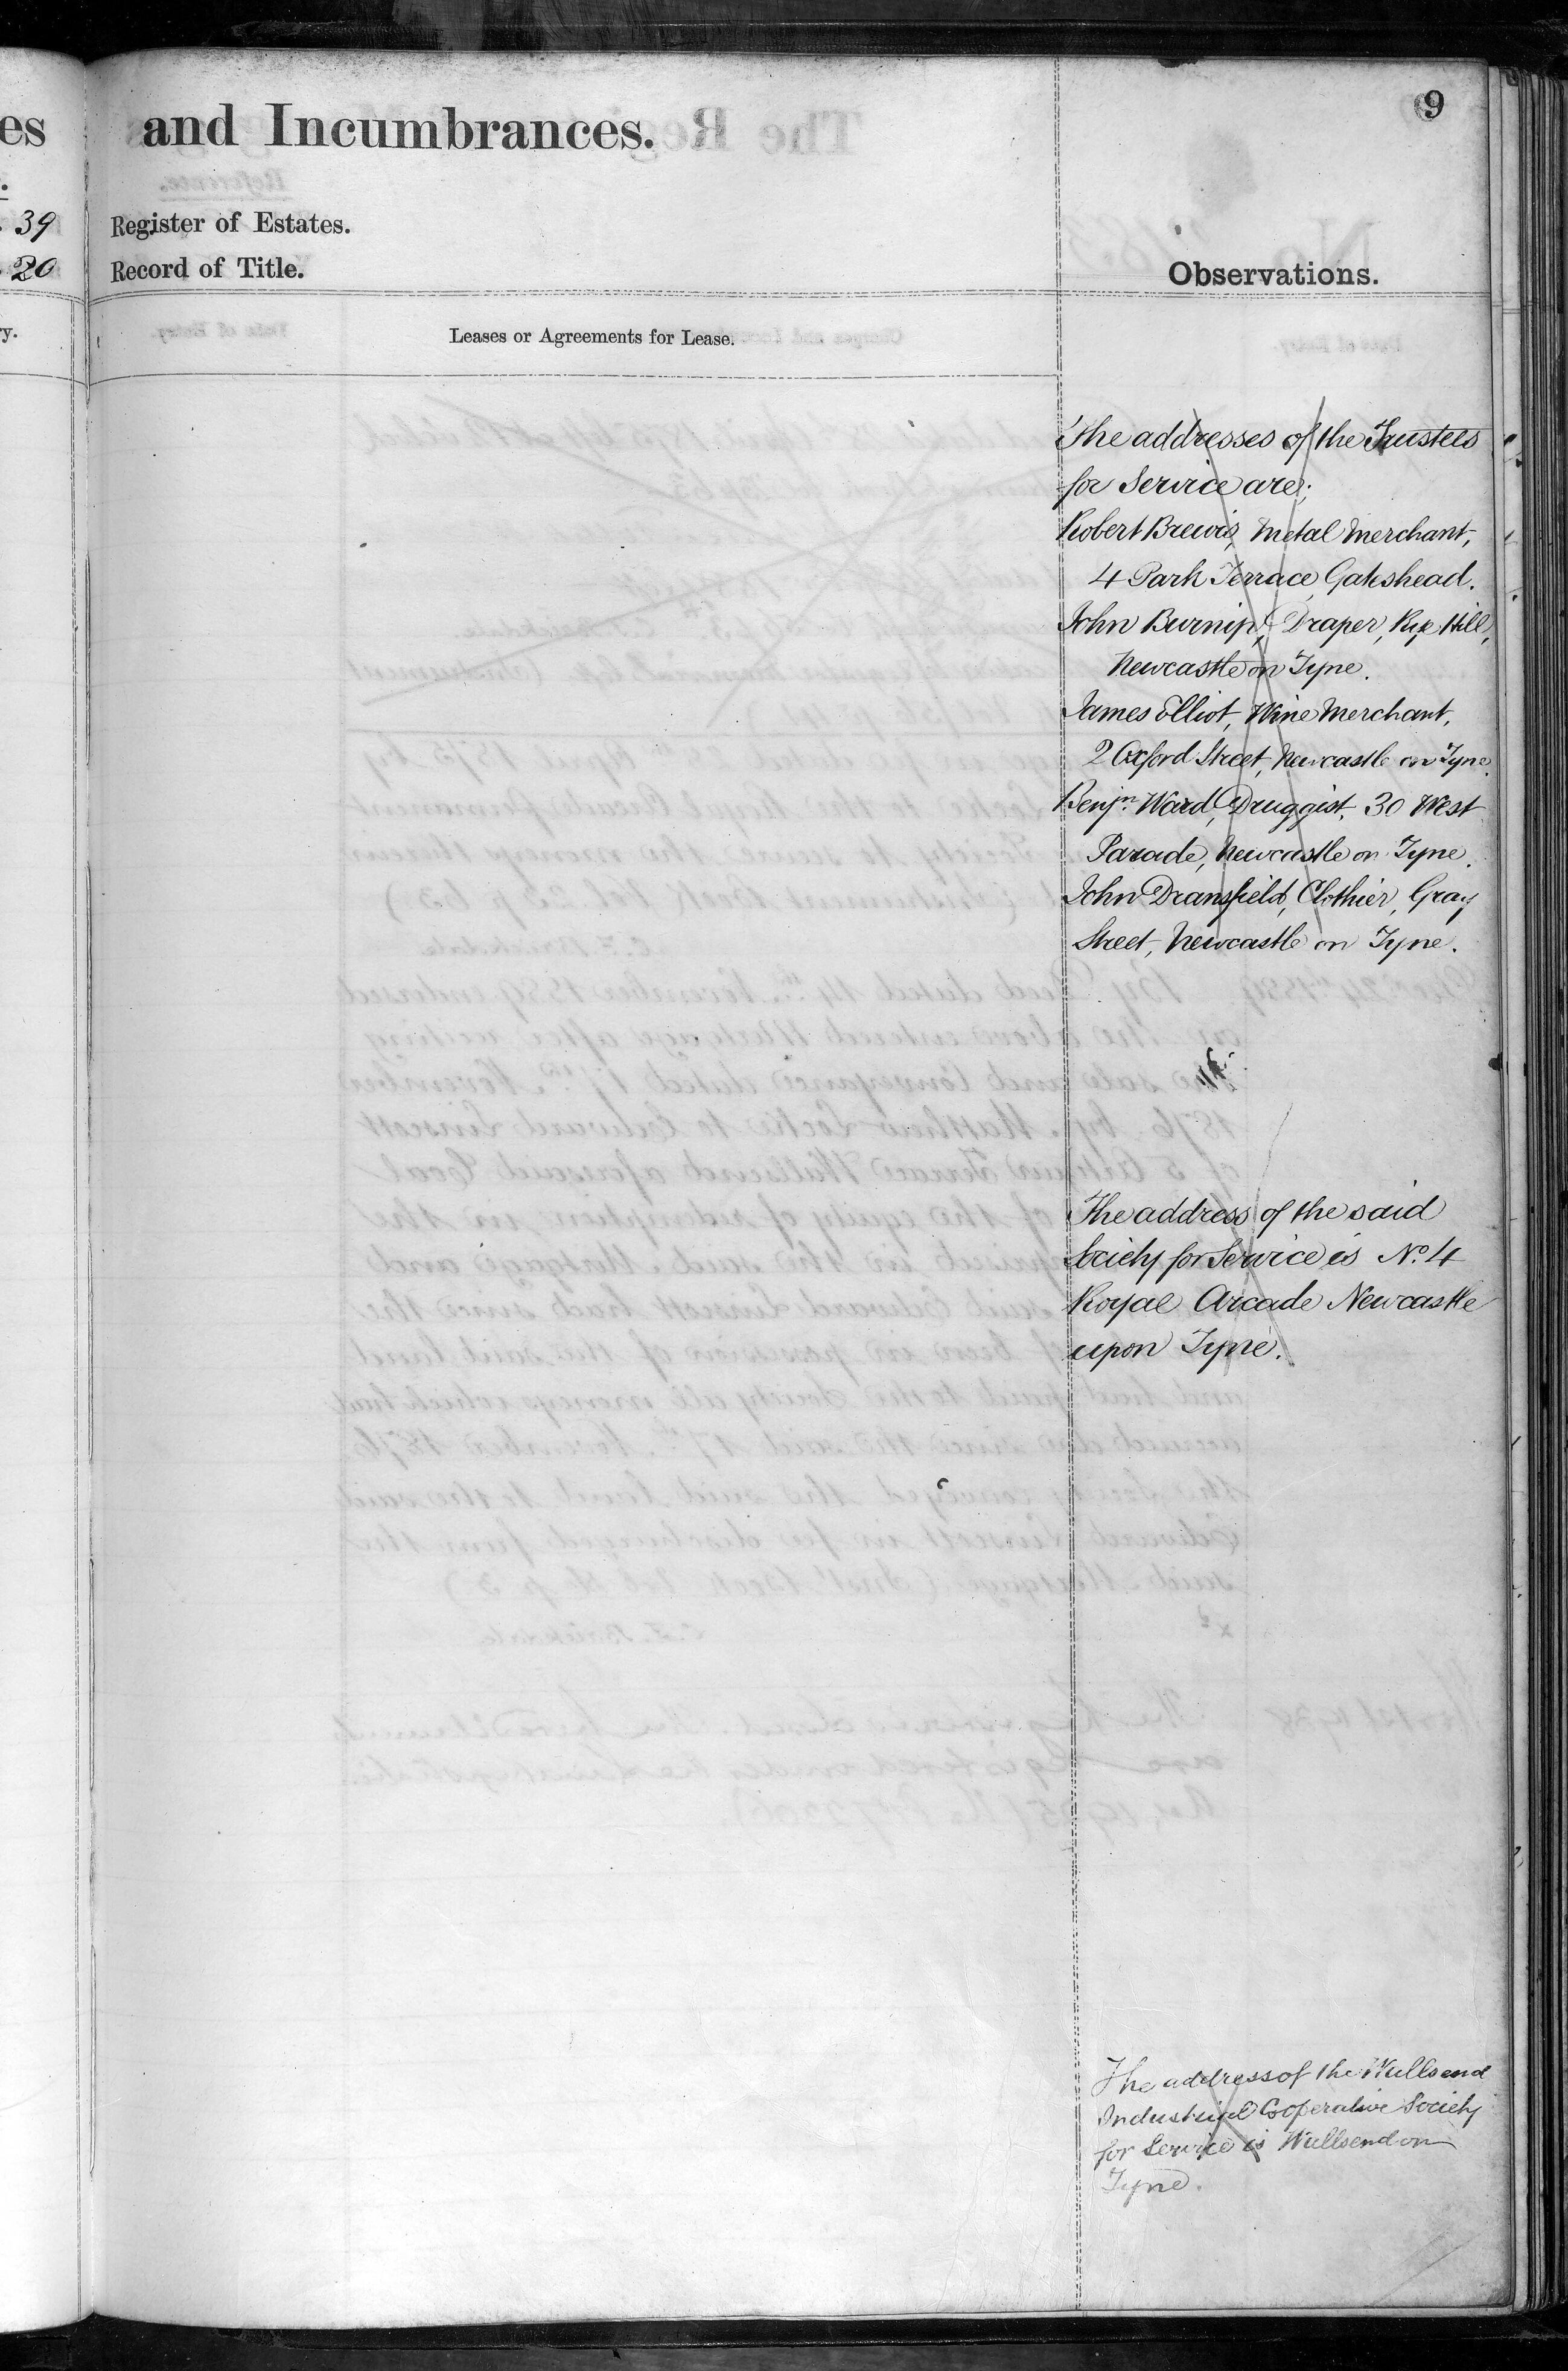 9
es and Incumbrances.
39 Register of Estates.
20 Record of Title.
Observations.
y.
Leases or Agreements for Lease.
The addresses of the Trustees
for Service are;
Robert Brewis, Metal Merchant,
4 Park Terrace, Gateshead.
John Burnip, Draper, Hill,
Newcastle on Tyne.
James Elliot, Wine Merchant,
2 Oxford Street, Newcastle on Tyne.
Benjn. Ward, Druggist, 30 West
Parade, Newcastle on Tyne.
John Dransfield, Clothier, Gray
Street, Newcastle on Tyne.
The address of the said
Society for Service is No. 4
Royal Arcade Newcastle
upon Tyne.
The address of the Wallsend
Industrial Cooperative Society
for Service is Wallsend on
Tyne.